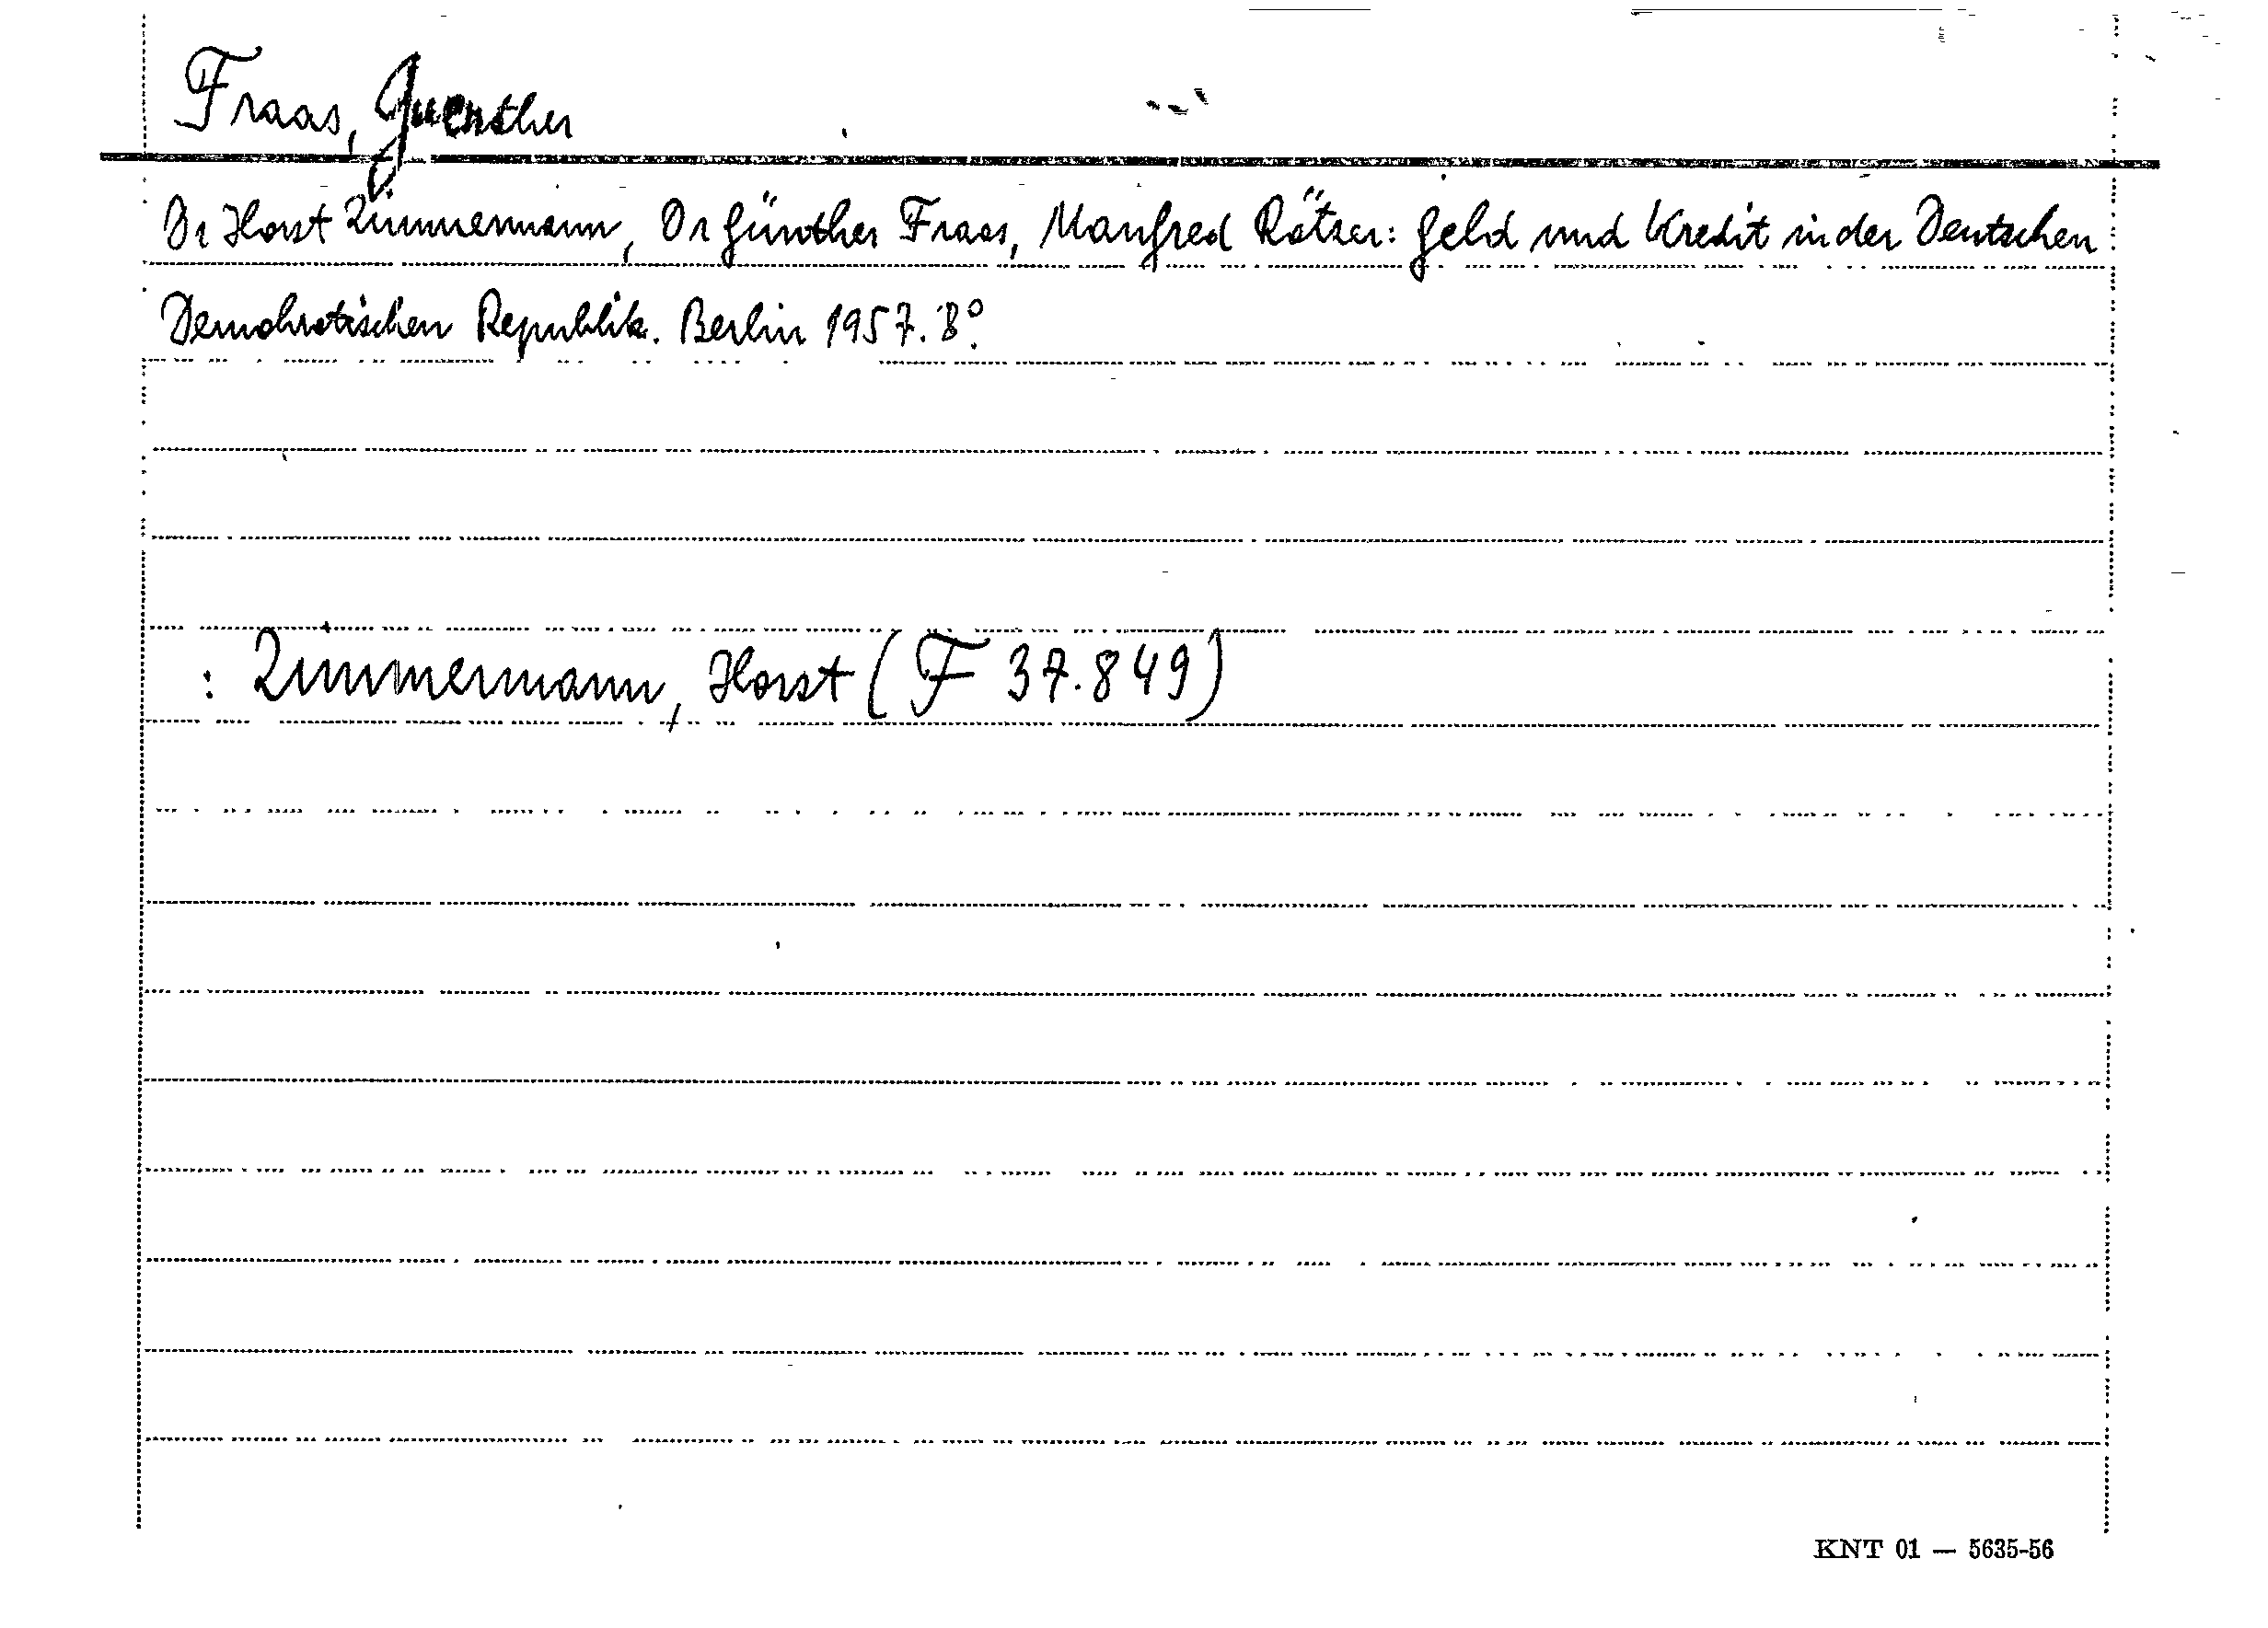 Fraas, Guenther
Dr Horst Zimmermann, Dr Günther Fraas, Manfred Rätzer: Geld und Kredit in der Deutschen
Demokratischen Republik. Berlin 1957. 8°.
: Zimmermann, Horst (F 37.849)
KNT 01 — 5635-56